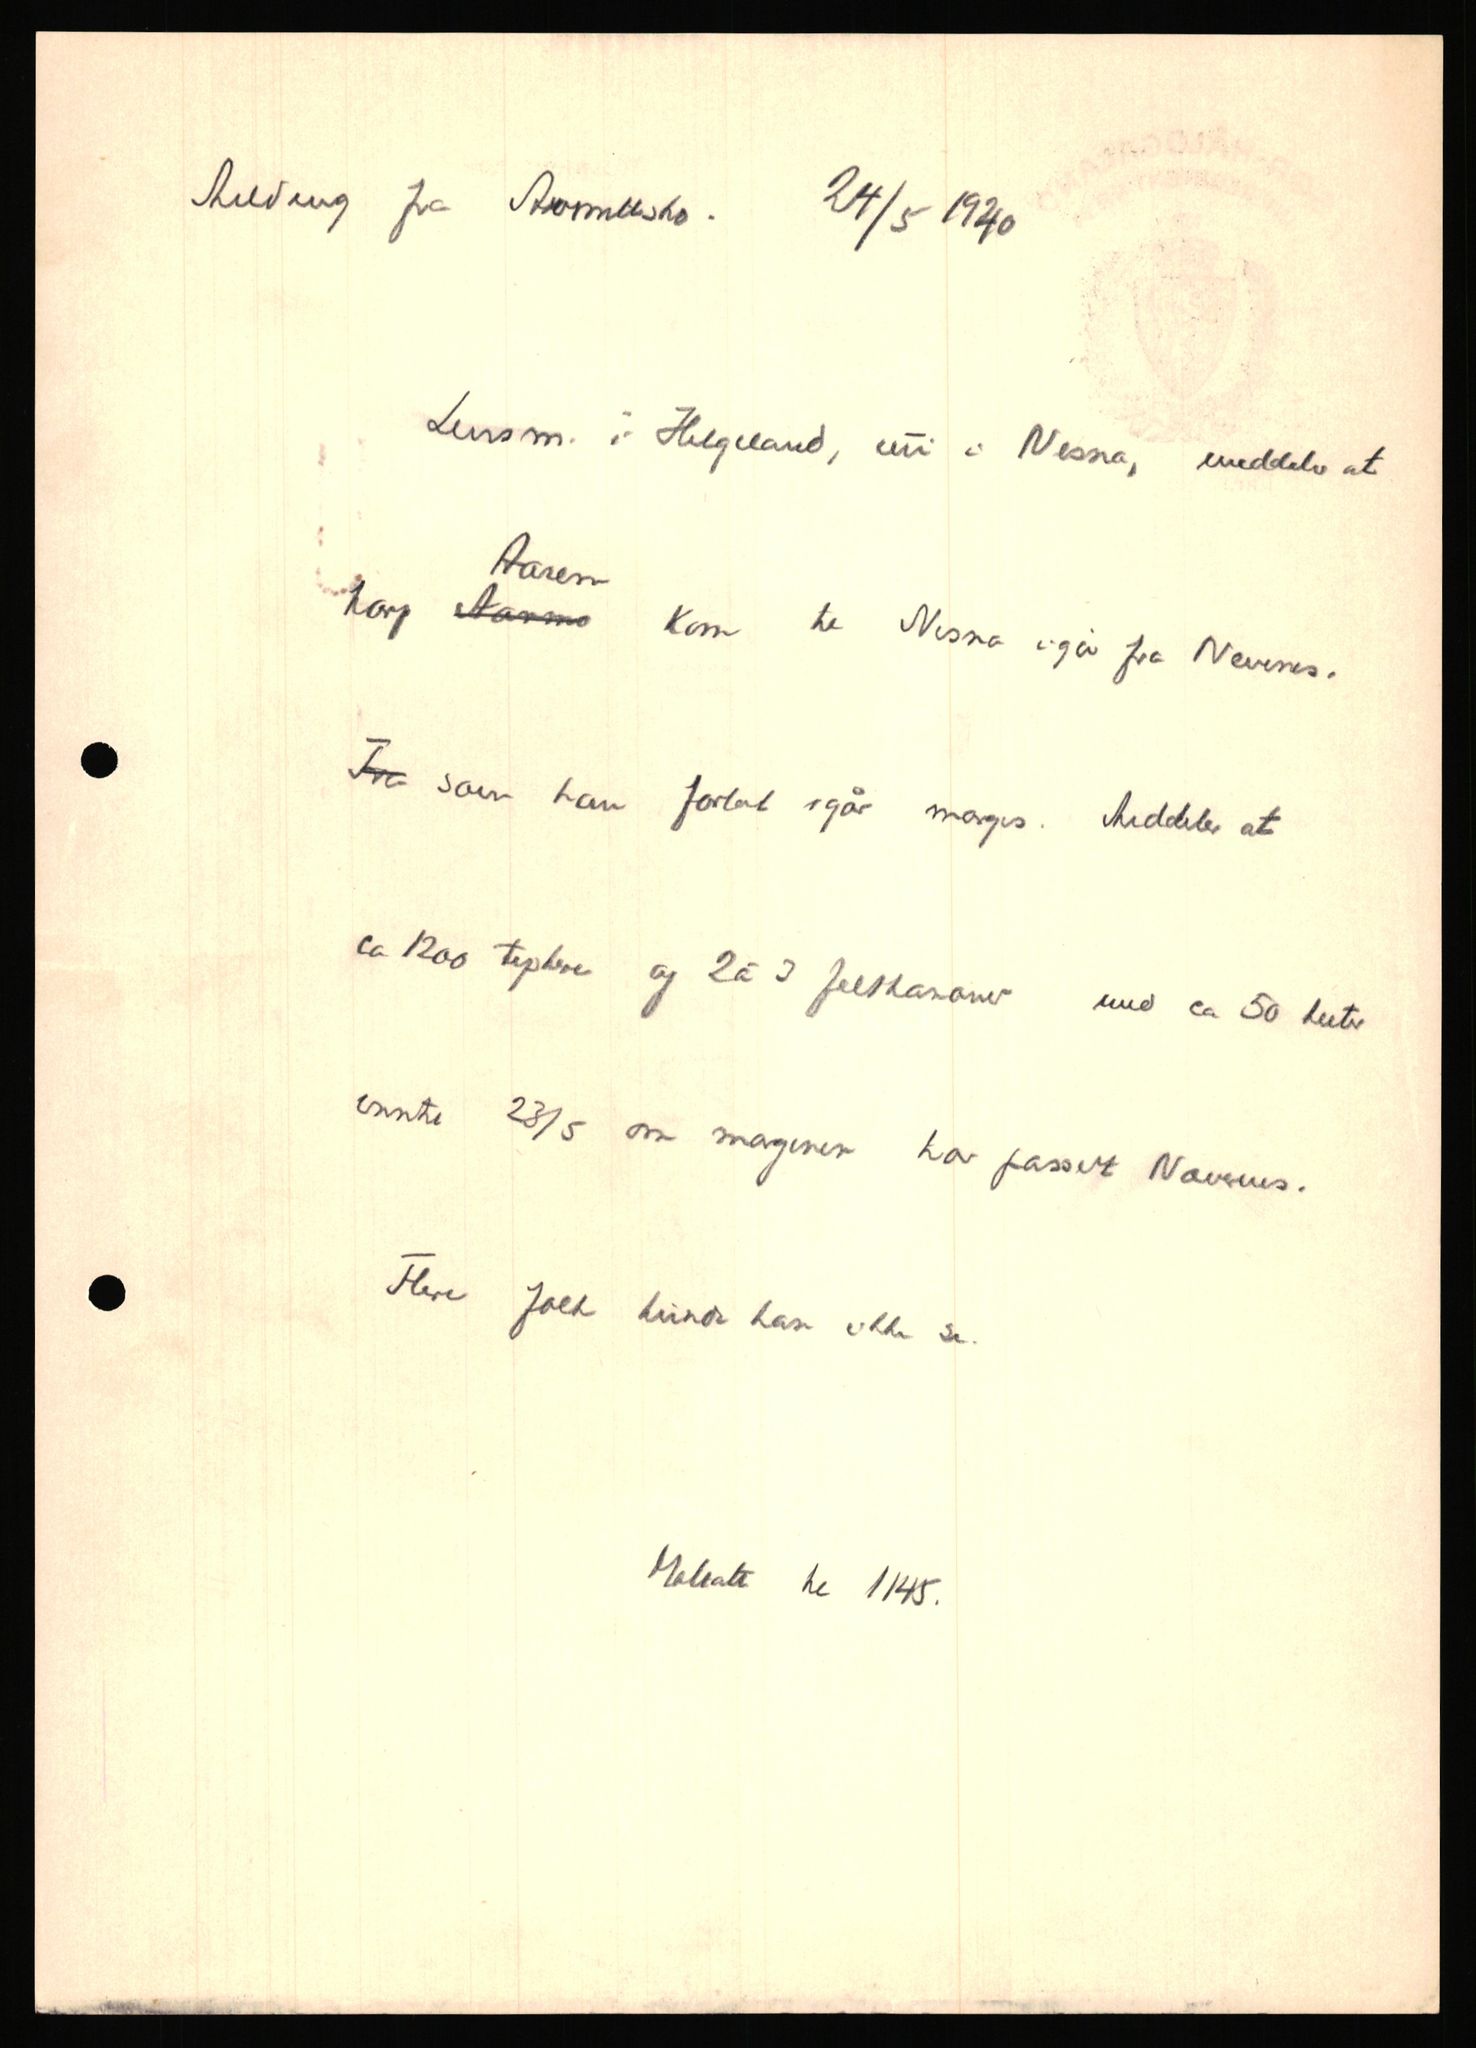 Melding fra 24/5 1940
Lensm. i Helgeland, nå i Nesna, meddeler at
Aasen
korp kom til Nesna igår fra Nevernes.
Fra som han forlot igår morges. Meddeler at
ca 1200 tyskere og 2 à 3 feltkanoner med ca 50 hester
23/5 om morgenen har passert Nevernes.
Flere folk kunde han ikke se.
Mottatt kl 1145.